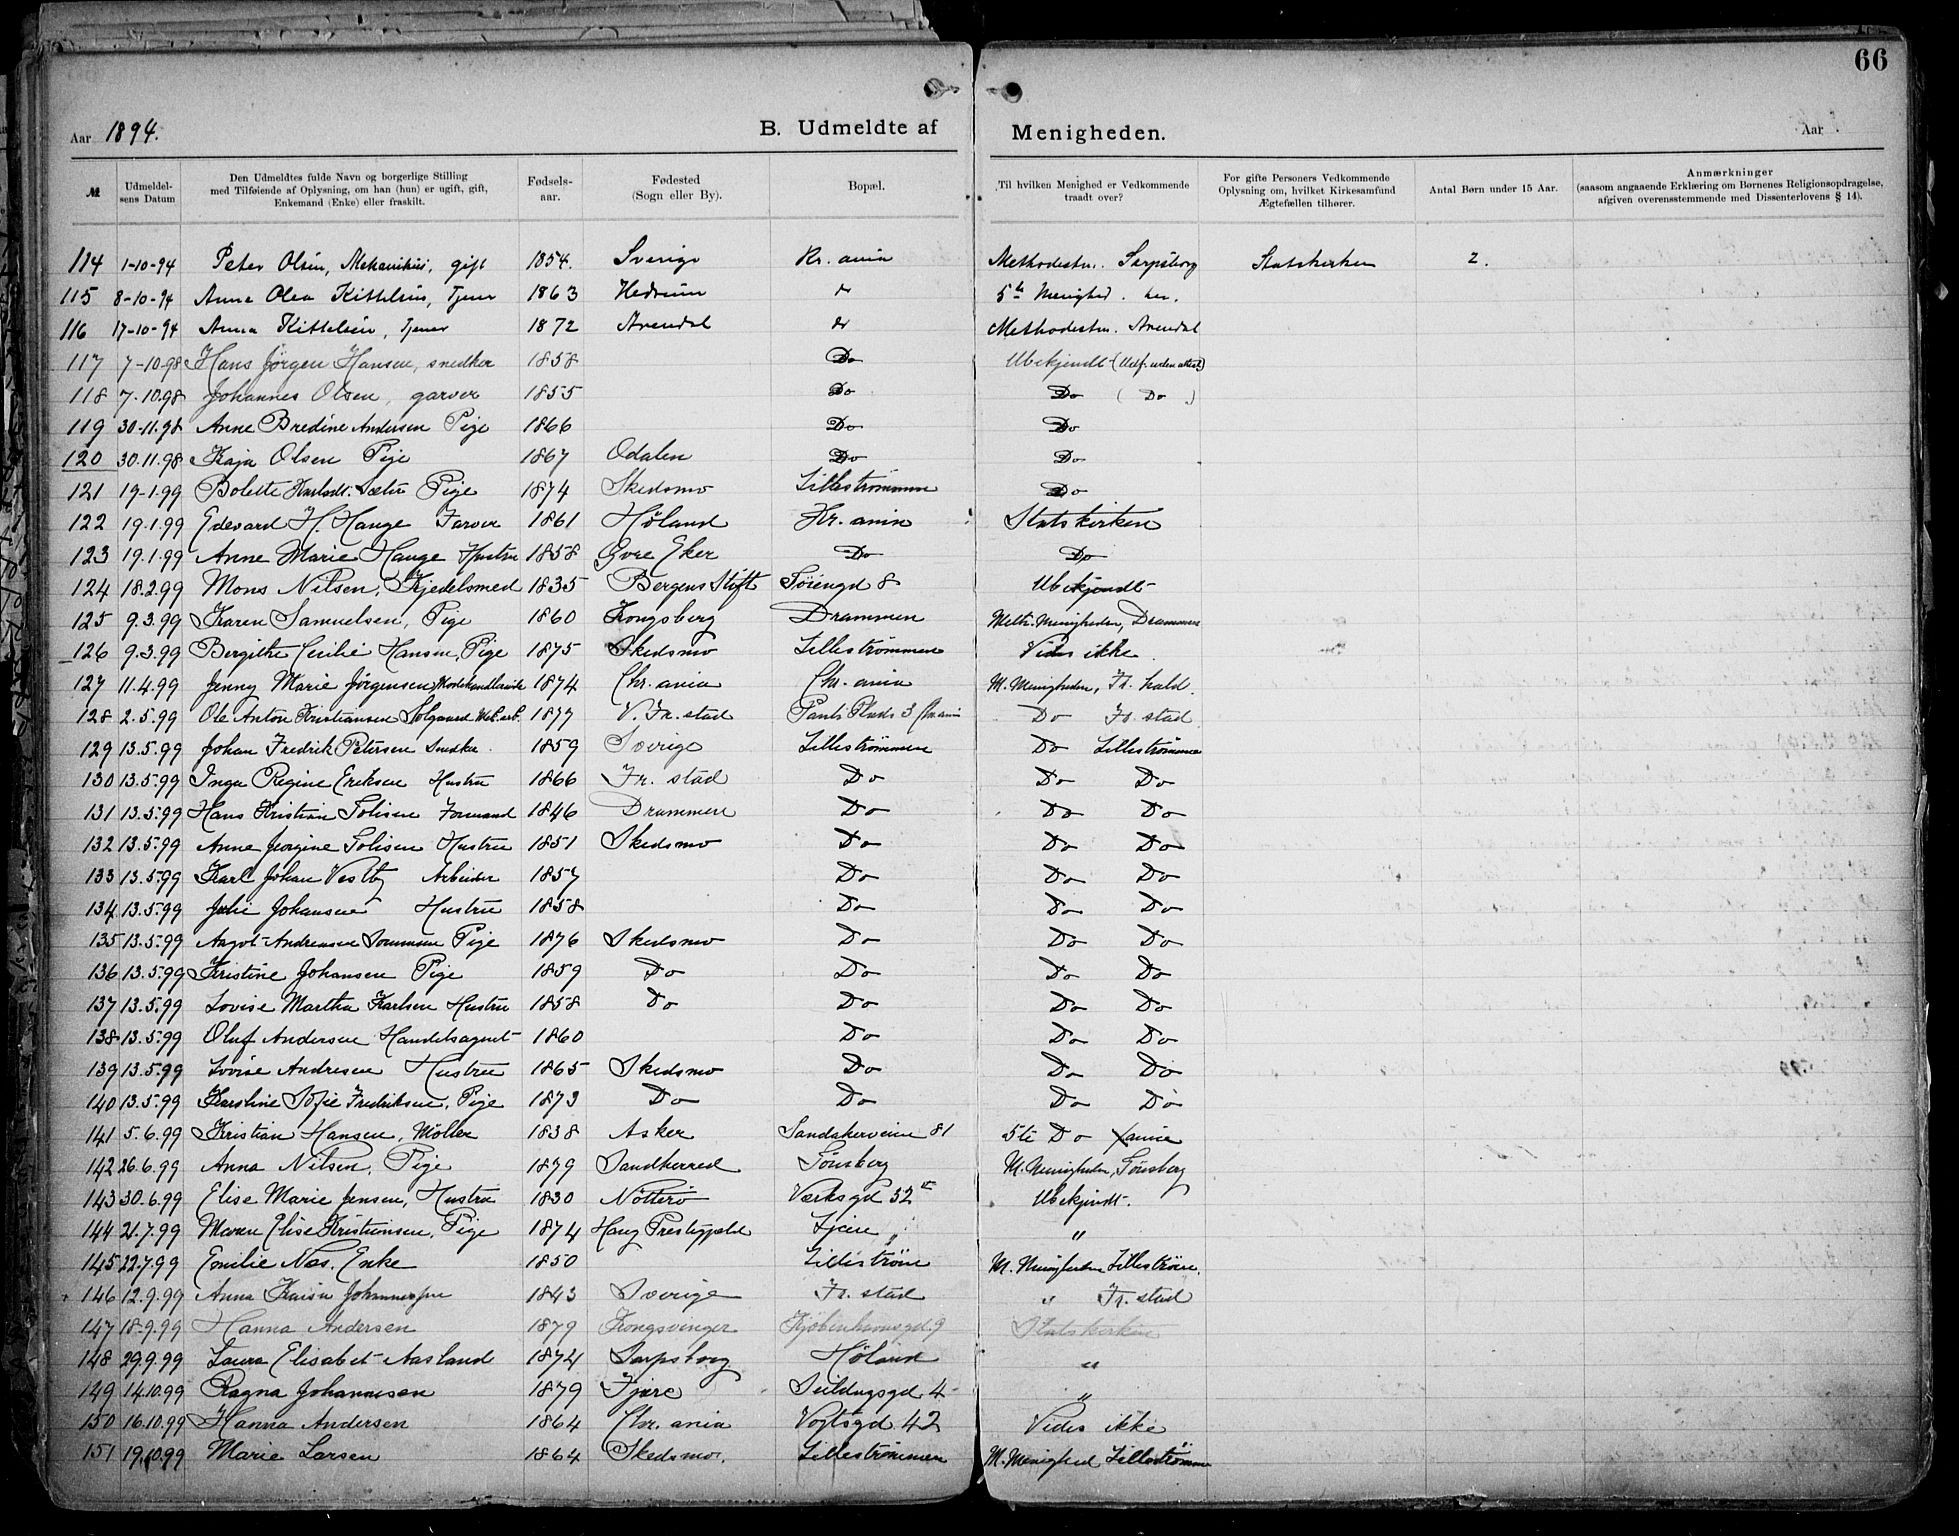 66
Aar 1894. B. Udmeldte af Menigheden. Aar
№ | Udmeldelsens Datum | Den Udmeldtes fulde Navn og borgerlige Stilling med Tilføiende af Oplysning, om han (hun) er ugift, gift, Enkemand (Enke) eller fraskilt. | Fødselsaar. | Fødested (Sogn eller By). | Bopæl. | Til hvilken Menighed er Vedkommende traadt over? | For gifte Personers Vedkommende Oplysning om, hvilket Kirkesamfund Ægtefællen tilhører. | Antal Børn under 15 Aar. | Anmærkninger (saasom angaaende Erklæring om Børnenes Religionsopdragelse, afgiven overensstemmende med Dissenterlovens § 14).
114 1-10-94 Peter Olsen, Mekanikus, gift 1854. Sverige Kr. ania Methodistm. Sarpsborg Statskirken 2.
115 8-10-94 Anna Olea Kittelsen, Tjener 1863 Hedrum 5te Menighed. her.
116 17-10-94 Anna Kittelsen, Tjener 1872 Arendal Methodistm. Arendal
117 7-10-98 Hans Jørgen Hansen, snedker 1858 Do Ubekjendt (Udf. uden attest)
118 7.10.98 Johannes Olsen, garver 1855 Do Do (Do)
119 30-11.98 Anne Bredine Andersen Pige 1866 Do Do
120 30.11.98 Kaja Olsen Pige 1867 Odalen Do Do
121 19-1.99 Bolette Sæter Pige 1874 Skedsmo Lillestrømmen Do
122 19.1.99 Edevard H. Hauge Farver 1861 Høland Kr. ania Statskirken
123 19.1.99 Anne Marie Hauge Hustru 1858 Øvre Eker Do Do
124 18.2.99 Mons Nilsen, Kjedelsmed 1835 Bergens Stift Tøiengd 8 Ubekjendt
125 9.3.99 Karen Samuelsen, Pige 1860 Kongsberg Drammen Meth. Menigheden, Drammen
126 9.3.99 Bergithe Cecilie Hansen, Pige 1875 Skedsmo Lillestrømmen Vides ikke.
127 11.4.99 Jenny Marie Jørgensen, Modehandlerinde 1874 Chr. ania Chr. ania M. Menigheden, Fr. hald.
128 2.5.99 Ole Anton Kristiansen Solgaard 1877 V. Fr. stad Do Fr. stad
129 13.5.99 Johan Fredrik Petersen Snedker 1859 Sverige Lillestrømmen Do Lillestrømmen
130 13.5.99 Inga Regine Eriksen Hustru 1866 Fr. stad Do Do Do
131 13.5.99 Hans Kristian Tolisen Formand 1846 Drammen Do Do Do
132 13.5.99 Anne Jørgine Tolisen Hustru 1851 Skedsmo Do Do Do
133 13.5.99 Karl Johan Vestby Arbeider 1857 Do Do Do
134 13.5.99 Julie Johansen Hustru 1858 Do Do Do
135 13.5.99 Aagot Andreasen Pige 1876 Skedsmo Do Do Do
136 13.5.99 Kristine Johansen Pige 1859 Do Do Do Do
137 13.5.99 Lovise Martha Karlsen Hustru 1858 Do Do Do Do
138 13.5.99 Oluf Andersen Handelsagent 1860 Do Do Do
139 13.5.99 Lovise Andresen Hustru 1865 Skedsmo Do Do Do
140 13.5.99 Karoline Sofie Fredriksen, Pige 1873 Do Do Do Do
141 5.6.99 Kristian Hansen, Møller 1838 Asker Sandakerveien 81 5te Do Xania
142 26.6.99 Anna Nilsen, Pige 1879 Sandherred Tønsberg M. Menigheden, Tønsberg
143 30.6.99 Elise Marie Jensen, Hustru 1830 Nøtterø Værksgd 32 Ubekjendt.
144 21.7.99 Maren Elise Kristiansen, Pige 1874 Haug Prestegjeld "
145 22.7.99 Emilie Næs. Enke 1850 Lillestrøm M. Menigheden Lillestrøm.
146 12.9.99 Anna Kaisa Johannesen 1843 Sverige Fr. stad " Fr. stad
147 18.9.99 Hanna Andersen 1879 Kongsvinger Kjøbenhavnsgd. 9 Statskirken
148 29.9.99 Laura Elisabet Aasland 1874 Sarpsborg Høland "
149 14.10.99 Ragna Johannesen 1879 Fjære Seildugsgd. 4 "
150 16.10.99 Hanna Andersen 1864 Chr. ania Vogtsgd. 42 Vides ikke
151 19.10.99 Marie Larsen 1864 Skedsmo. Lillestrømmen M. Menighed Lillestrømmen